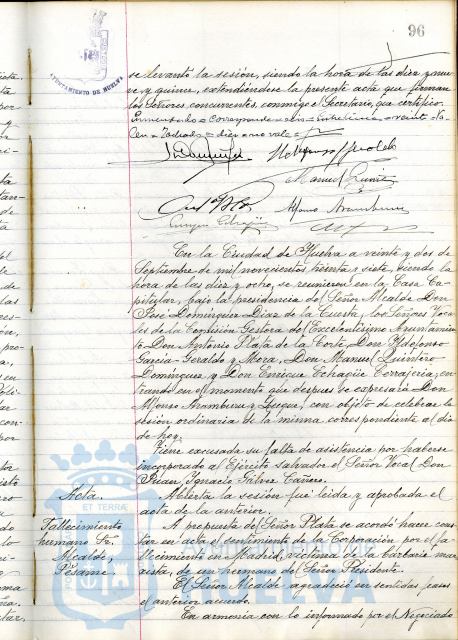 96
AYUNTAMIENTO DE HUELVA
se levantó la sesión, siendo la hora de las diez y nue-
ve y quince, extendiéndose la presente acta que firman
los Señores concurrentes, conmigo el Secretario, que certifico.
Enmendado = corresponde =
= Tachado = diez = no vale =
Manuel Quintero
Alfonso Aramburu
Enrique Echagüe
En la Ciudad de Huelva a veinte y dos de
Septiembre de mil novecientos treinta y siete, siendo la
hora de las diez y ocho, se reunieron en la Casa Ca-
pitular, bajo la presidencia del Señor Alcalde Don
José Domínguez Díaz de la Cuesta, los Señores Voca-
les de la Comisión Gestora del Excelentísimo Ayuntamien-
to Don Antonio Plata de la Corte, Don Ildefonso
García-Geraldo y Mora, Don Manuel Quintero
Domínguez y Don Enrique Echagüe Torrajería, en-
trando en el momento que después se expresará Don
Alfonso Aramburu y Luque, con objeto de celebrar la
sesión ordinaria de la misma correspondiente al día
de hoy.
Tiene excusada su falta de asistencia por haberse
incorporado al Ejército salvador el Señor Vocal Don
Juan Ignacio Gálvez Cañero.
Acta.
Abierta la sesión fué leída y aprobada el
acta de la anterior.
Fallecimiento
hermano Sr.
Alcalde,
Pésame.
A propuesta del Señor Plata se acordó hacer cons-
tar en acta el sentimiento de la Corporación por el fa-
llecimiento en Madrid, víctima de la barbarie mar-
xista, de un hermano del Señor Presidente.
El Señor Alcalde agradeció en sentidas frases
el anterior acuerdo.
En armonía con lo informado por el Negociado
ET TERRAE